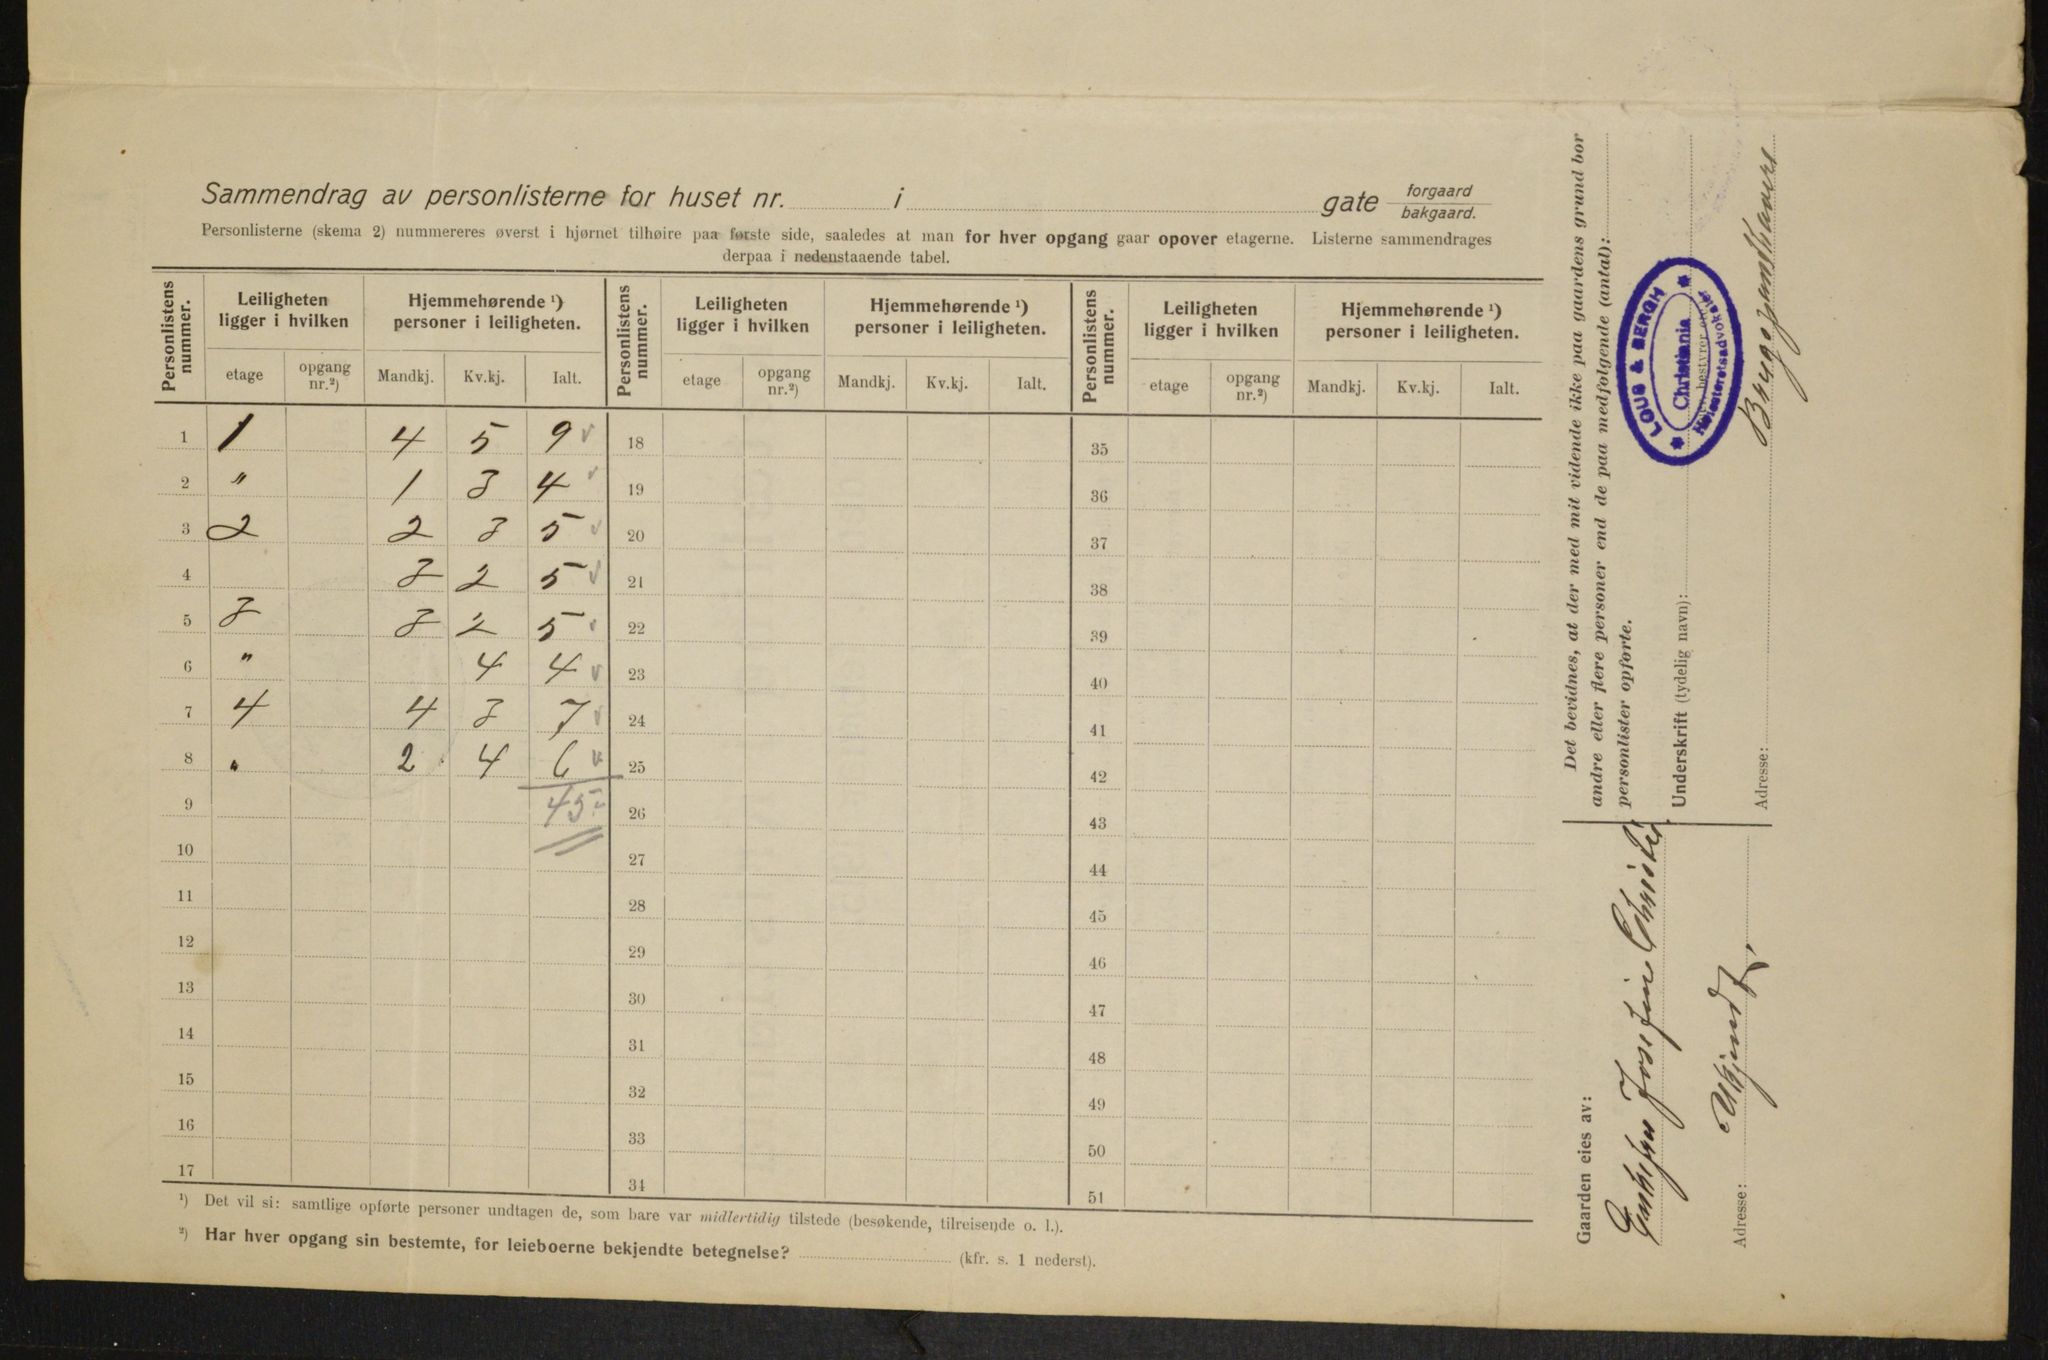 Sammendrag av personlisterne for huset nr. i gate forgaard bakgaard.
Personlisterne (skema 2) nummereres øverst i hjørnet tilhøire paa første side, saaledes at man for hver opgang gaar opover etagerne. Listerne sammendrages
derpaa i nedenstaaende tabel.
Personlistens nummer. Leiligheten ligger i hvilken Hjemmehørende ¹) personer i leiligheten. Personlistens nummer. Leiligheten ligger i hvilken Hjemmehørende ¹) personer i leiligheten. Personlistens nummer. Leiligheten ligger i hvilken Hjemmehørende ¹) personer i leiligheten.
etage opgang nr.²) Mandkj. Kv.kj. Ialt. etage opgang nr.²) Mandkj. Kv.kj. Ialt. etage opgang nr.²) Mandkj. Kv.kj. Ialt.
1 1 4 5 9 v 18 35
2 " 1 3 4 v 19 36
3 2 2 3 5 v 20 37
4 3 2 5 v 21 38
5 3 3 2 5 v 22 39
6 " 4 4 v 23 40
7 4 4 3 7 v 24 41
8 " 2 4 6 v 25 42
9 45 26 43
10 27 44
11 28 45
12 29 46
13 30 47
14 31 48
15 32 49
16 33 50
17 34 51
¹) Det vil si: samtlige opførte personer undtagen de, som bare var midlertidig tilstede (besøkende, tilreisende o. l.).
²) Har hver opgang sin bestemte, for leieboerne bekjendte betegnelse? (kfr. s. 1 nederst).
Det bevidnes, at der med mit vidende ikke paa gaardens grund bor
andre eller flere personer end de paa medfølgende (antal):
personlister opførte.
Underskrift (tydelig navn):
LOUS & BERGH
Christiania
Høiesteretsadvokater
bestyrer
Adresse:
Gaarden eies av:
Josefine
Adresse: Ukjendt